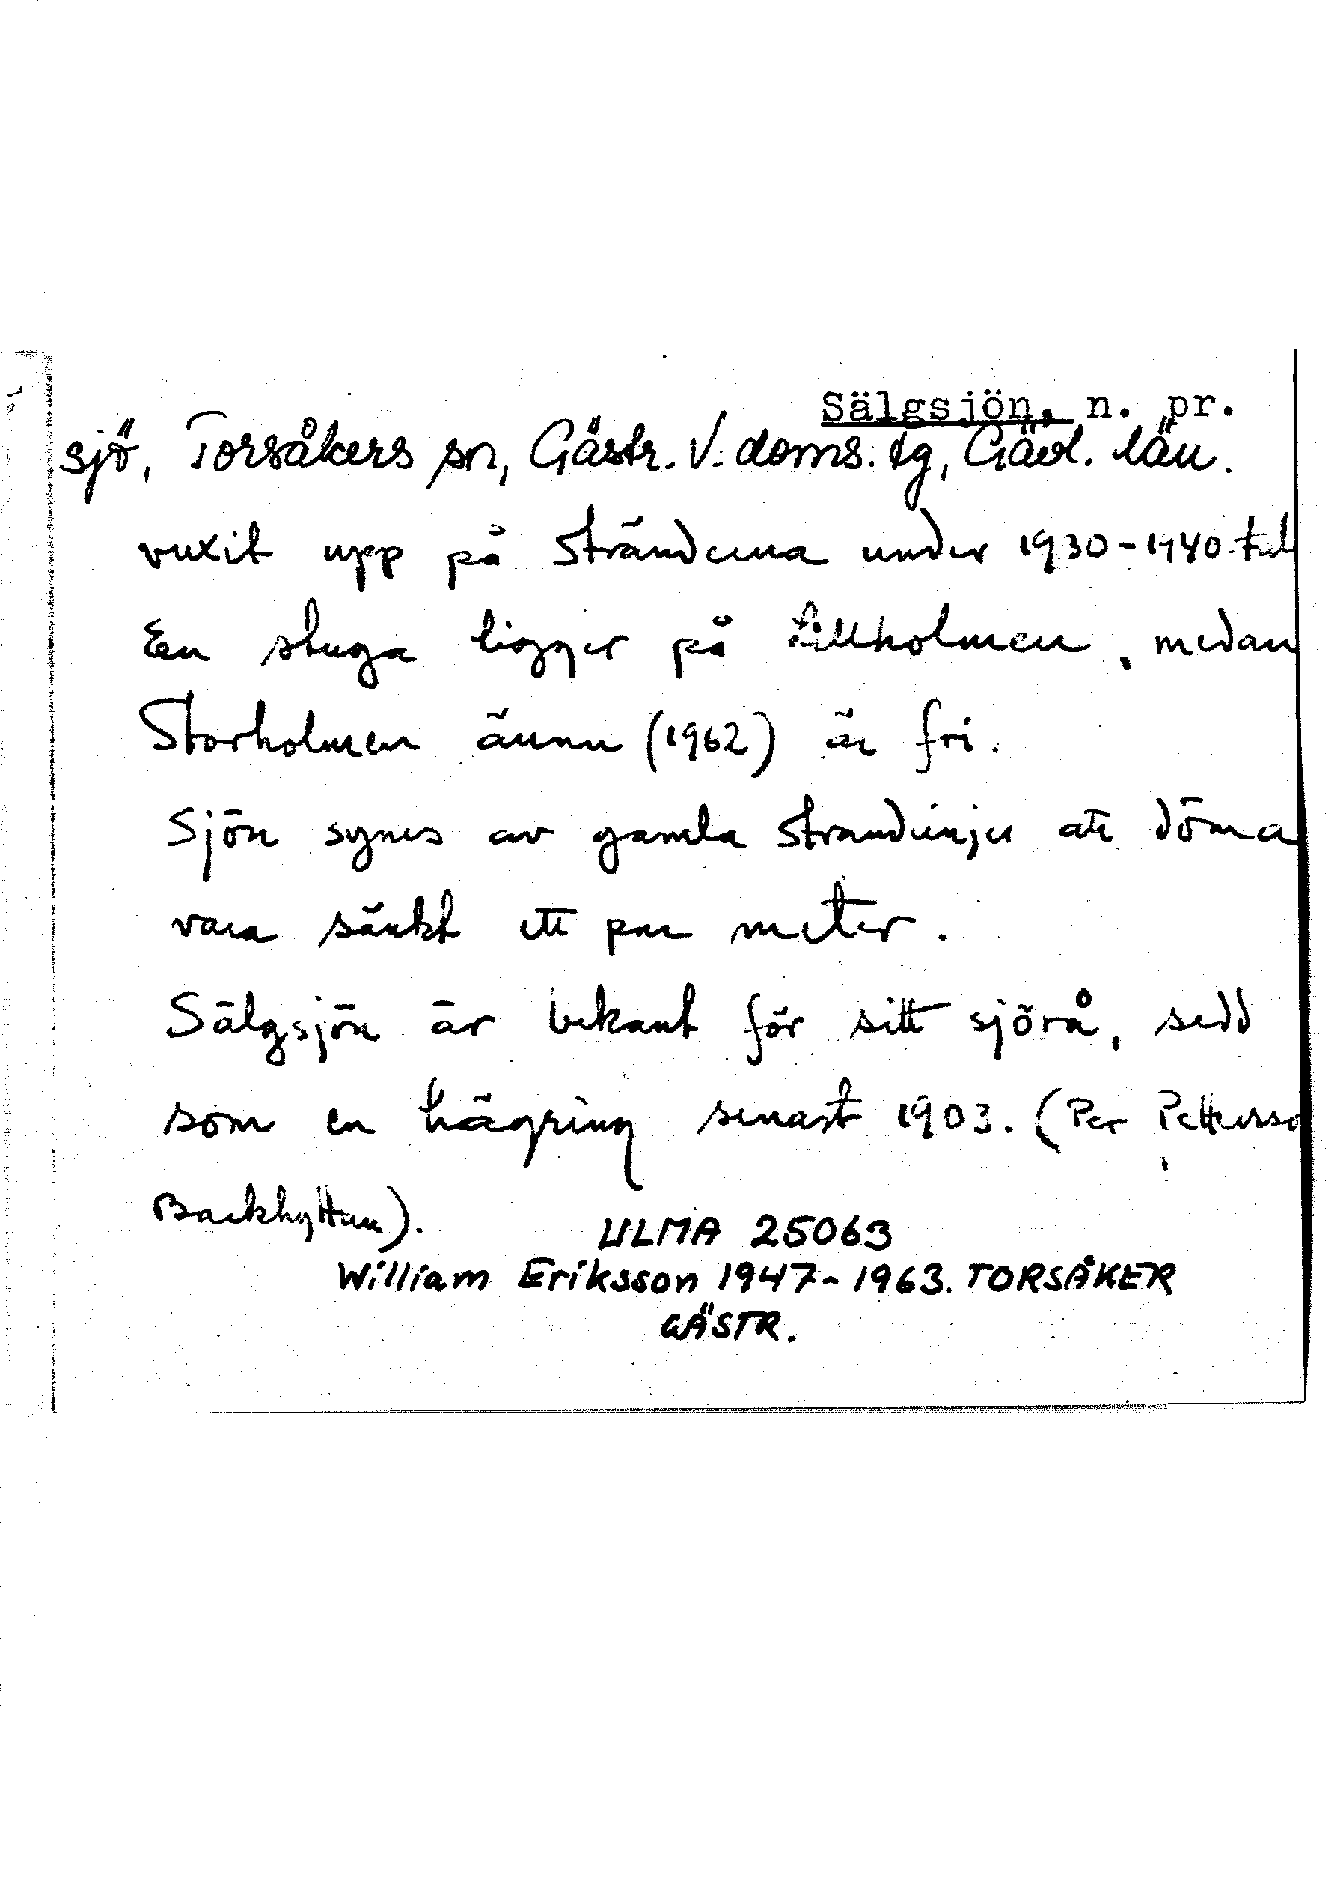 Sälgsjön, n. pr.
sjö, Torsåkers sn, Gästr. V. doms. tg, Gävl. län.
vuxit upp på stränderna under 1930-1940-tal
En stuga ligger på Lillholmen, medan
Storholmen ännu (1962) är fri.
Sjön synes av gamla strandlinjer att döma
vara sänkt ett par meter.
Sälgsjön är bekant för sitt sjörå, sedd
som en hägring senast 1903. (Per Petterso
Backhyttan).
ULMA 25063
William Eriksson 1947-1963. TORSÅKER
GÄSTR.